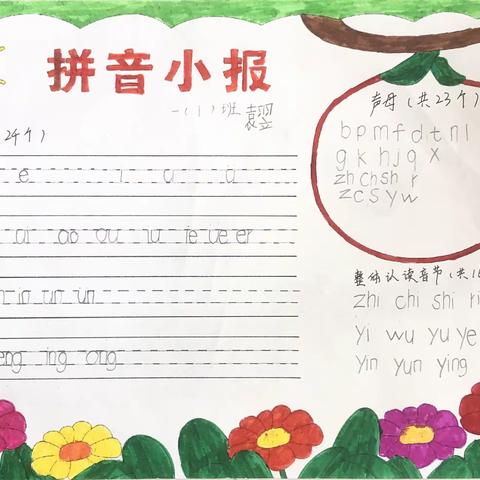 拼音小报
一(1)班
24个)
e i u ü
ui ao ou iu ie üe er
in un ün
eng ing ong
声母(共23个)
b p m f d t n l
g k h j q x
zh ch sh r
z c s y w
整体认读音节(共16
zhi chi shi ri
yi wu yu ye
yin yun ying